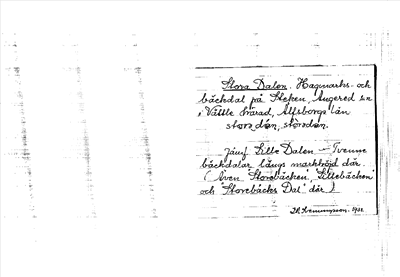 Stora Dalen. Hagmarks- och
bäckdal på Steken, Angered sn
i Vättle härad, Älfsborgs län
stora dán, stórodán.
Jämf. Lille Dalen - Tvenne
bäckdalar längs markhöjd där
(Även Storebäcken, Lillebäcken
och 'Storebäcks Dal' där)